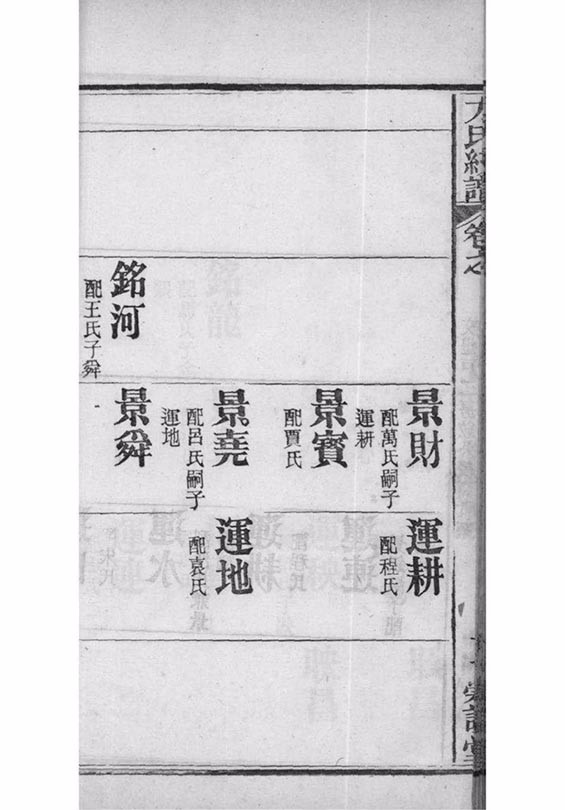 卷之
銘河
配王氏子舜
景財
配萬氏嗣子
運耕
景賓
配賈氏
景堯
配呂氏嗣子
運地
景舜
運耕
配程氏
運地
配袁氏